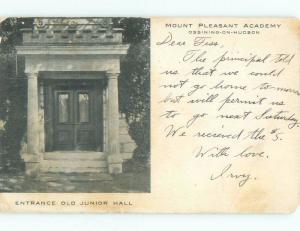 MOUNT PLEASANT ACADEMY
OSSINING-ON-HUDSON
Dear Tess,
The principal told
us that we could
not go home to-morrow
but will permit us
to go next Saturday
We recieved the $5.
With love.
Irvy.
ENTRANCE OLD JUNIOR HALL